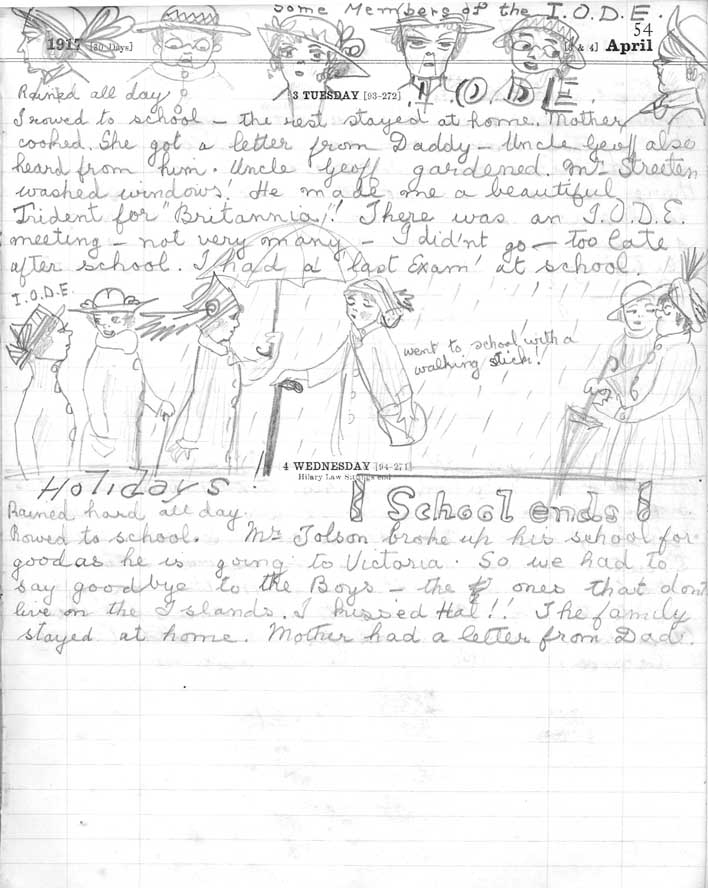 Some Members of the I.O.D.E.
54
1917 [30 Days]
& 4] April
3 TUESDAY [93-272]
I.O.D.E.
Rained all day
I rowed to school - the rest stayed at home. Mother
cooked. She got a letter from Daddy - Uncle Geoff also
heard from him. Uncle Geoff gardened. Mr. Streeten
washed windows! He made me a beautiful
Trident for "Britannia"!! There was an I.O.D.E.
meeting - not very many - I did'nt go - too late
after school. I had a 'last Exam' at school.
I.O.D.E.
went to school with a
walking stick!
4 WEDNESDAY [94-271]
Hilary Law Sittings end
Holidays.
! School ends !
Rained hard all day.
Rowed to school. Mr. Tolson broke up his school for
good as he is going to Victoria. So we had to
say goodbye to the Boys - the ones that dont
live on the Islands. I kissed Hal!! The family
stayed at home. Mother had a letter from Dad.